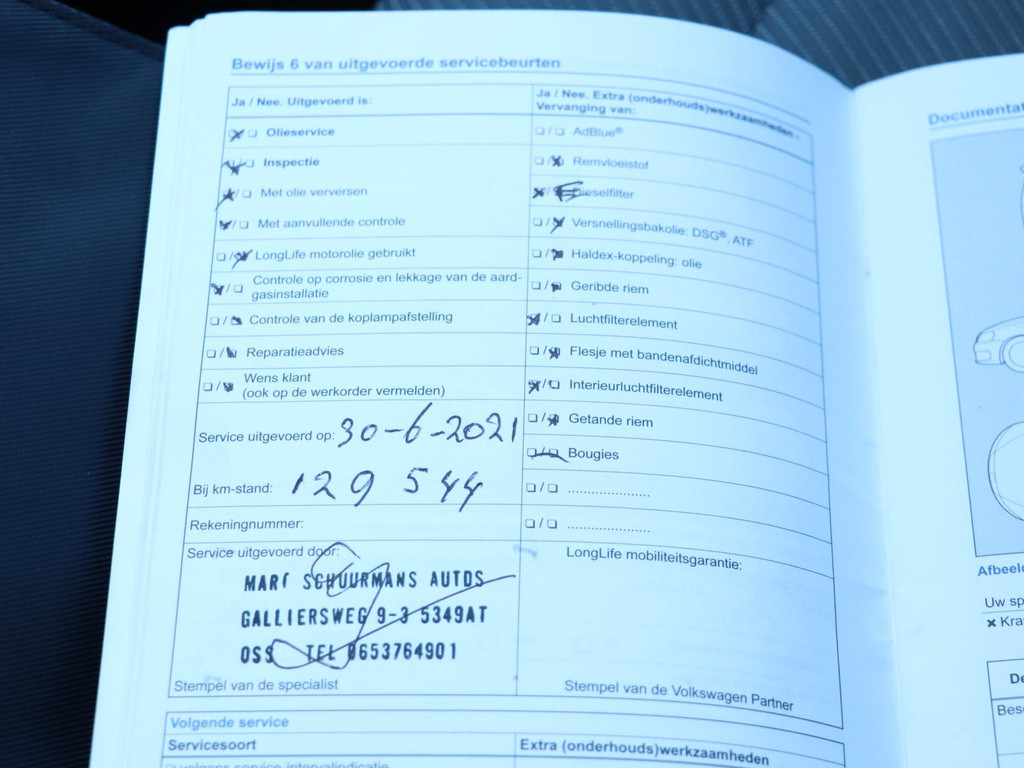 Bewijs 6 van uitgevoerde servicebeurten
Ja / Nee. Uitgevoerd is:
Olieservice
Inspectie
Met olie verversen
Met aanvullende controle
LongLife motorolie gebruikt
Controle op corrosie en lekkage van de aard-
gasinstallatie
Controle van de koplampafstelling
Reparatieadvies
Wens klant
(ook op de werkorder vermelden)
Service uitgevoerd op: 30-6-2021
Bij km-stand: 129 544
Rekeningnummer:
Service uitgevoerd door:
MARC SCHUURMANS AUTOS
GALLIERSWEG 9-3 5349AT
OSS TEL 0653764901
Stempel van de specialist
Ja / Nee. Extra (onderhouds)werkzaamheden -
Vervanging van:
AdBlue®
Remvloeistof
Dieselfilter
Versnellingsbakolie: DSG®, ATF
Haldex-koppeling: olie
Geribde riem
Luchtfilterelement
Flesje met bandenafdichtmiddel
Interieurluchtfilterelement
Getande riem
Bougies
LongLife mobiliteitsgarantie:
Stempel van de Volkswagen Partner
Volgende service
Servicesoort
Extra (onderhouds)werkzaamheden
volgens service-intervalindicatie
Uw sp
Kra